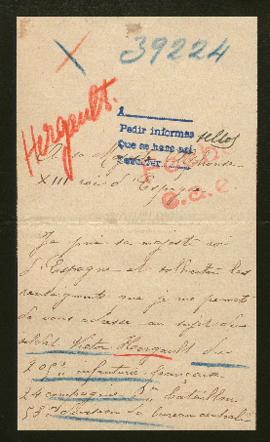 39224
Hergault.
A
Pedir informes
sellos
Que se hace así
A sa Majesté Alphonse
XIII roi d'Espagne
Je prie sa majesté roi
d'Espagne et sollicitant les
renseignements que je me permets
de vous adresser au sujet du
soldat Victor Hergault du
205e infanterie française
24 compagnie Bataillon
53e division bureau central